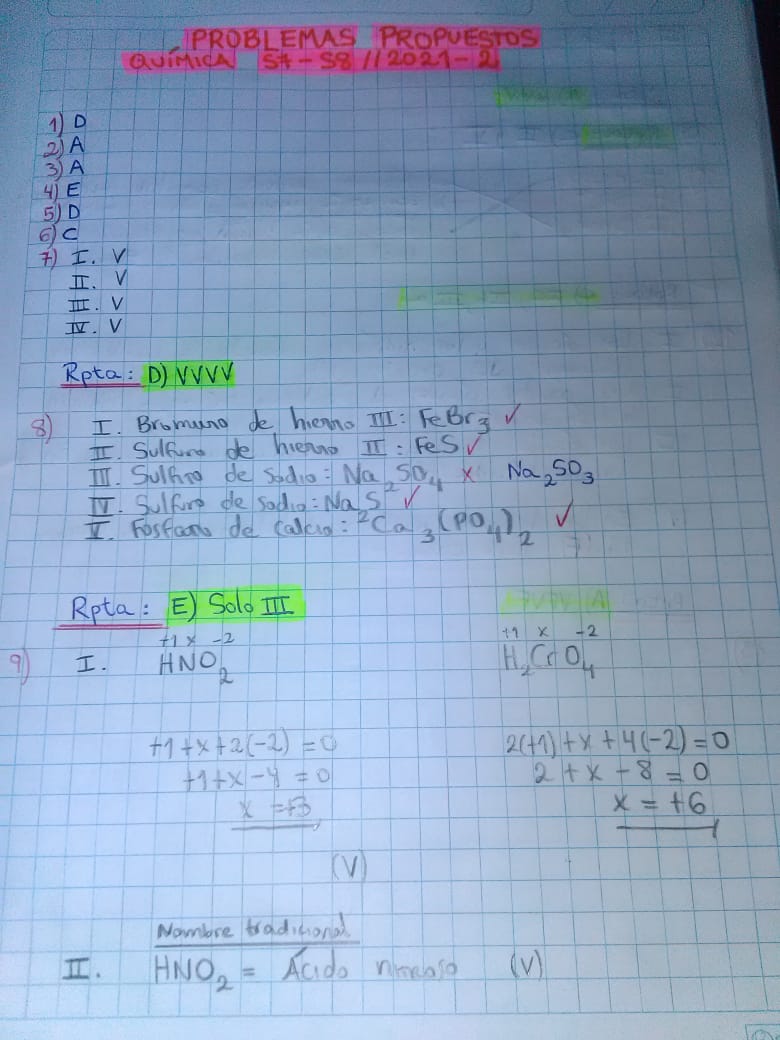 PROBLEMAS PROPUESTOS
QUÍMICA S7-S8 // 2021-2
1) D
2) A
3) A
4) E
5) D
6) C
7) I. V
II. V
III. V
IV. V
Rpta: D) VVVV
8) I. Bromuro de hierro III: FeBr₃ ✓
II. Sulfuro de hierro II: FeS ✓
III. Sulfito de sodio: Na₂SO₄ x Na₂SO₃
IV. Sulfuro de sodio: Na₂S ✓
V. Fosfato de calcio: Ca₃(PO₄)₂ ✓
Rpta: E) Solo III
+1 x -2 +1 x -2
9) I. HNO₂ H₂CrO₄
+1+x+2(-2)=0 2(+1)+x+4(-2)=0
+1+x-4=0 2+x-8=0
x=+3 x=+6
(V)
Nombre tradicional
II. HNO₂ = Ácido nitroso (V)